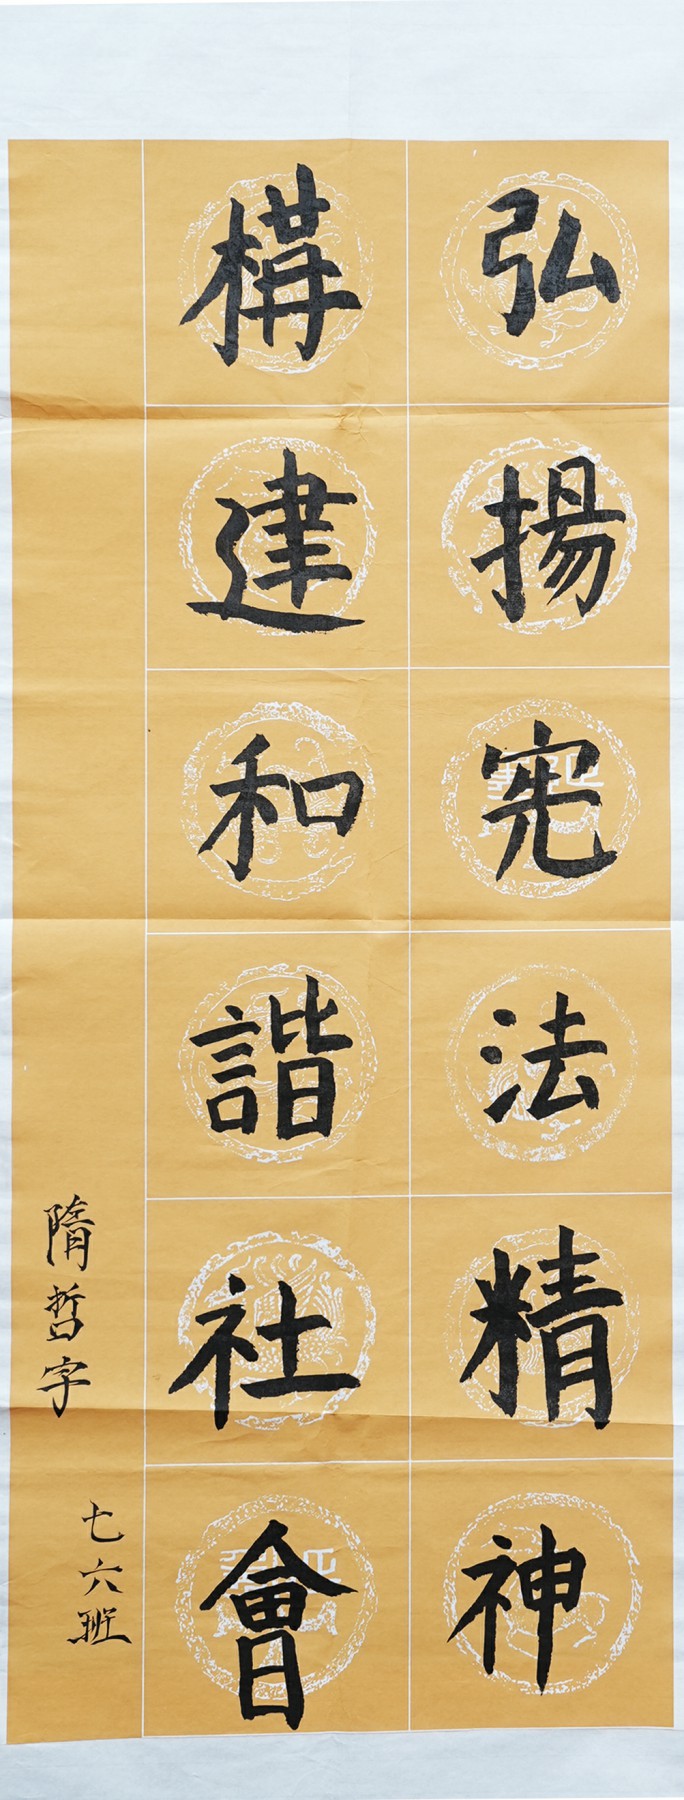 弘揚宪法精神
構建和諧社會
隋哲字
七六班